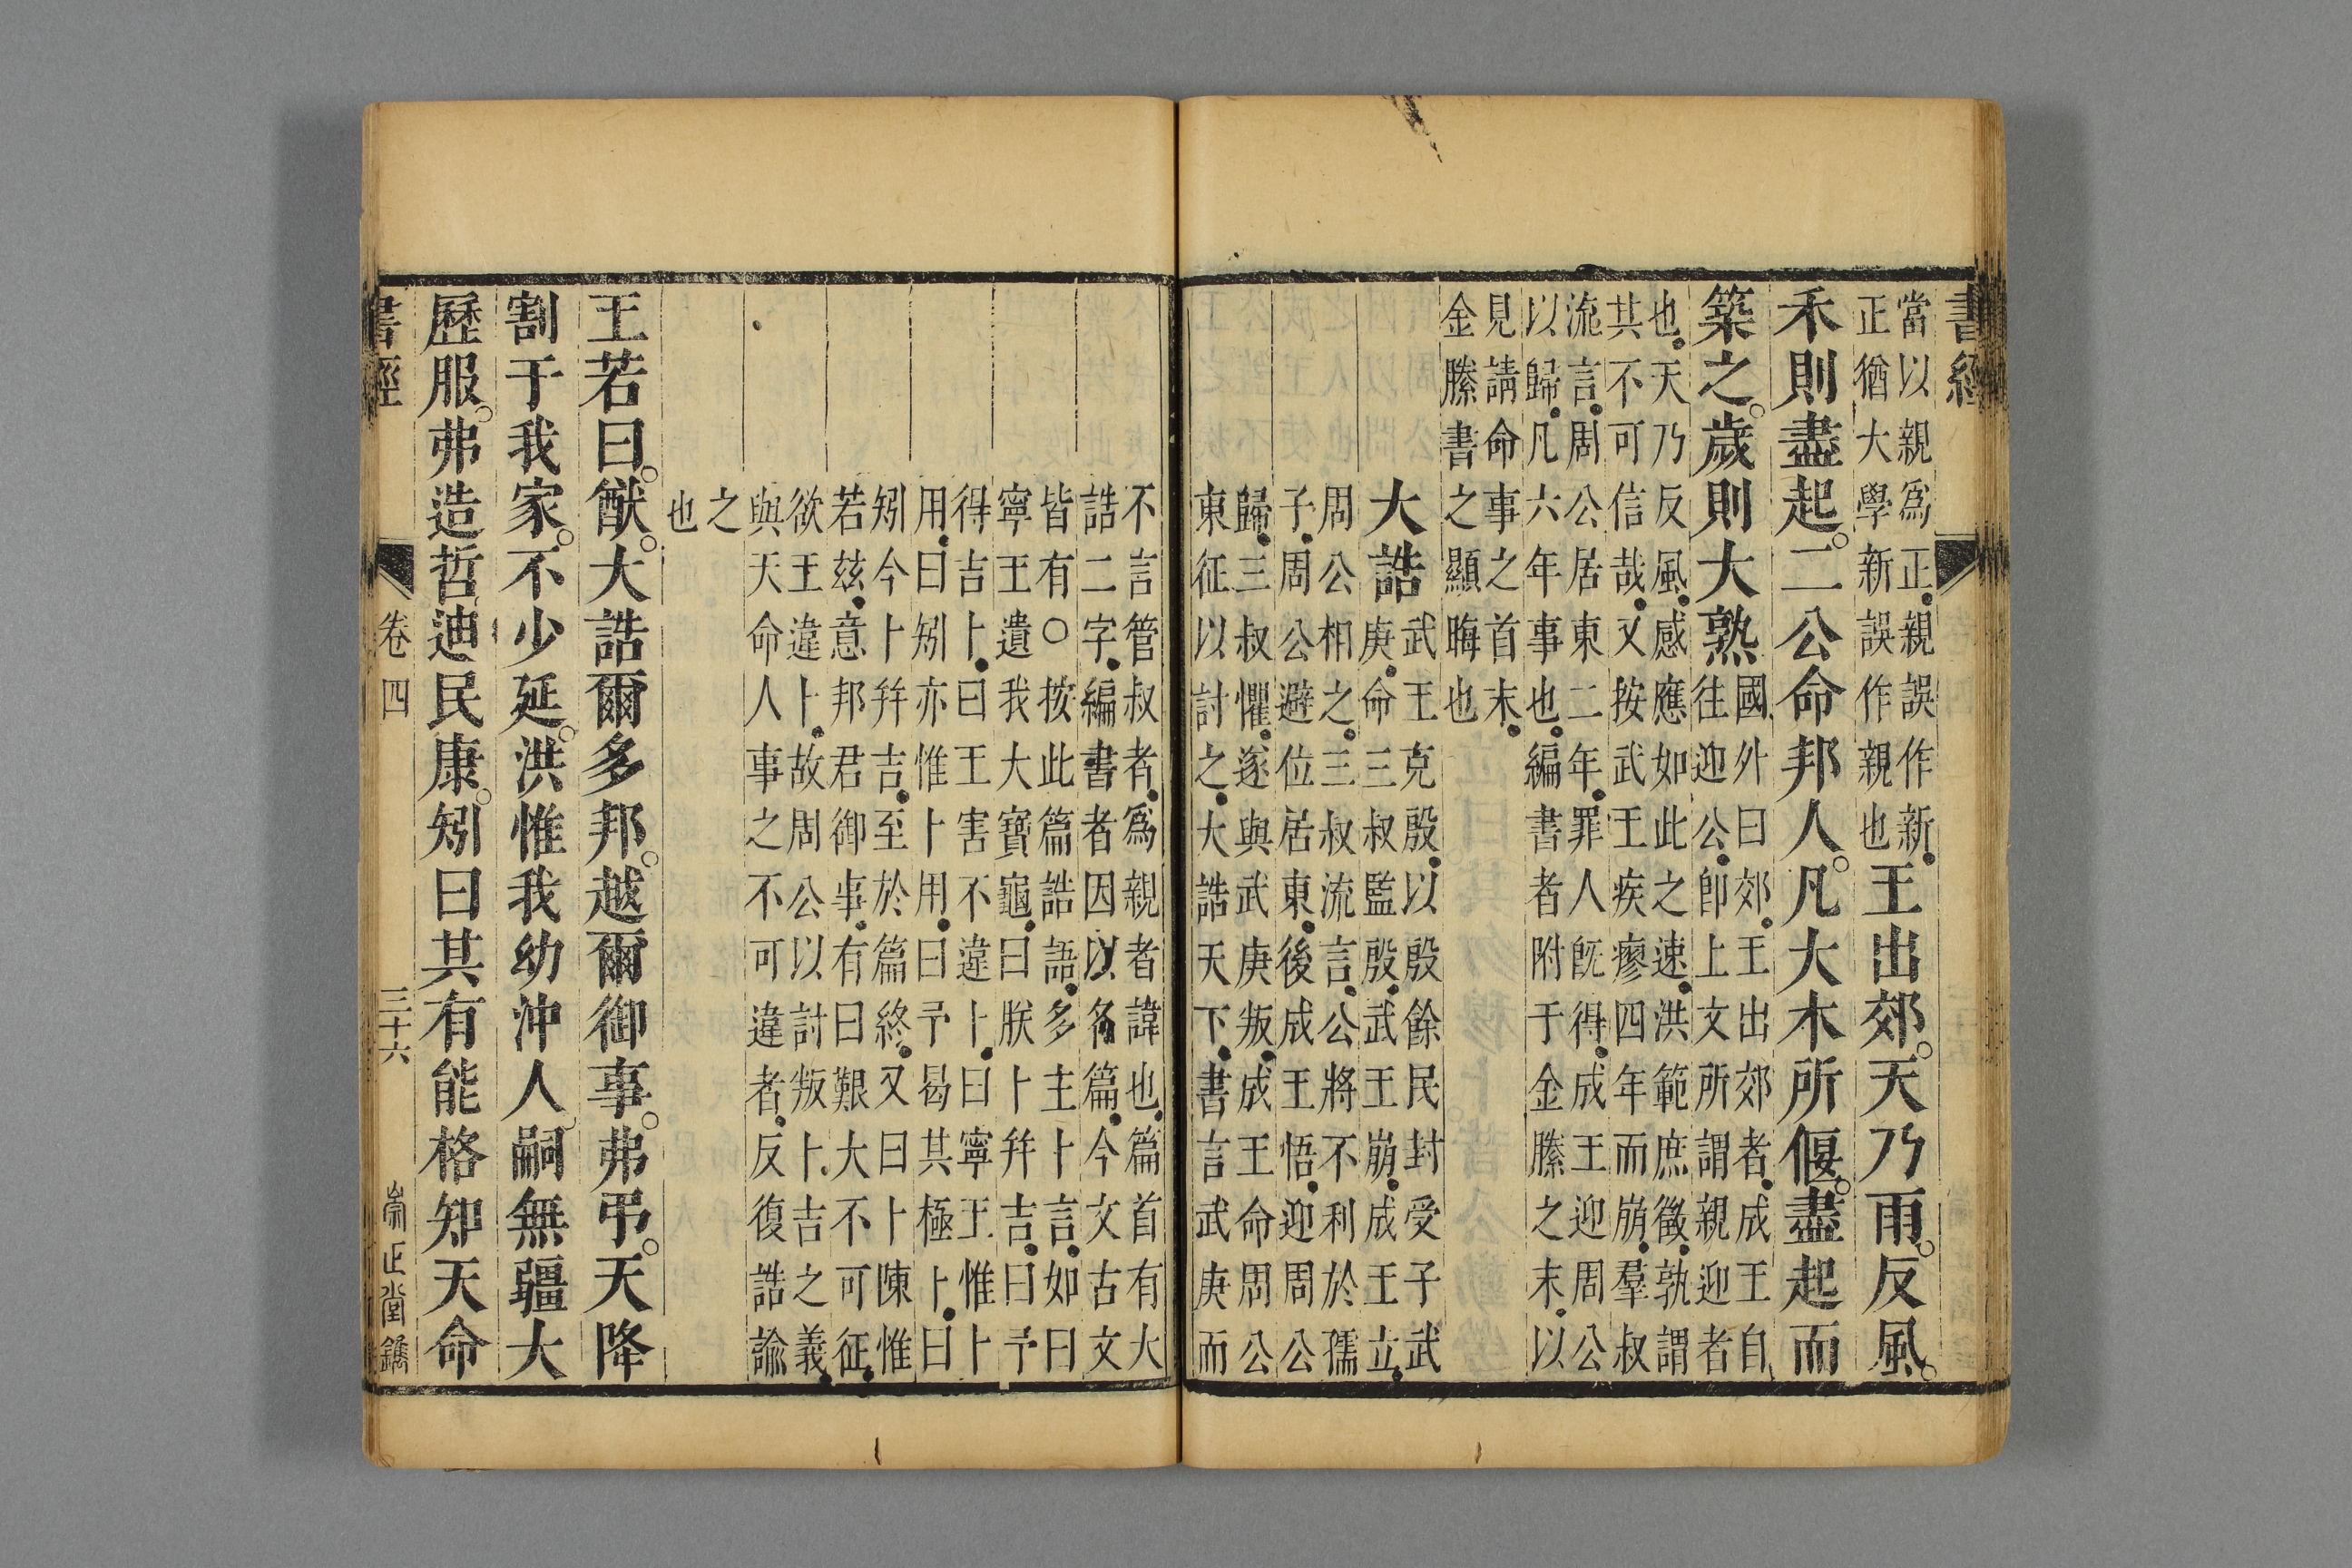 書經
當以親爲正、親誤作新、
正猶大學新誤作親也
王出郊。天乃雨。反風。
禾則盡起。二公命邦人。凡大木所偃。盡起而
築之。歲則大熟
國外曰郊、王出郊者、成王自
往迎公、卽上文所謂親迎者
也、天乃反風、感應如此之速、洪範庶徵、孰謂
其不可信哉、又按武王疾瘳四年而崩、羣叔
流言、周公居東二年、罪人旣得、成王迎周公
以歸、凡六年事也、編書者附于金縢之末、以
見請命事之首末、
金縢書之顯晦也
大誥
武王克殷、以殷餘民封受子武
庚、命三叔監殷、武王崩、成王立、
周公相之、三叔流言、公將不利於孺
子、周公避位居東、後成王悟、迎周公
歸、三叔懼、遂與武庚叛、成王命周公
東征以討之、大誥天下、書言武庚而
不言管叔者、爲親者諱也、篇首有大
誥二字、編書者因以名篇、今文古文
皆有○按此篇誥語、多主卜言、如曰
寧王遺我大寶龜、曰朕卜幷吉、曰予
得吉卜、曰王害不違卜、曰寧王惟卜
用、曰矧亦惟卜用、曰予曷其極卜、曰
矧今卜幷吉、至於篇終、又曰卜陳惟
若玆、意邦君御事、有曰艱大不可征、
欲王違卜、故周公以討叛卜吉之義、
與天命人事之不可違者、反復誥諭
之
也
王若曰。猷。大誥爾多邦。越爾御事。弗弔。天降
割于我家。不少延。洪惟我幼沖人。嗣無疆大
歷服。弗造哲迪民康。矧曰其有能格知天命
書經
卷四
三十六
崇正堂鐫